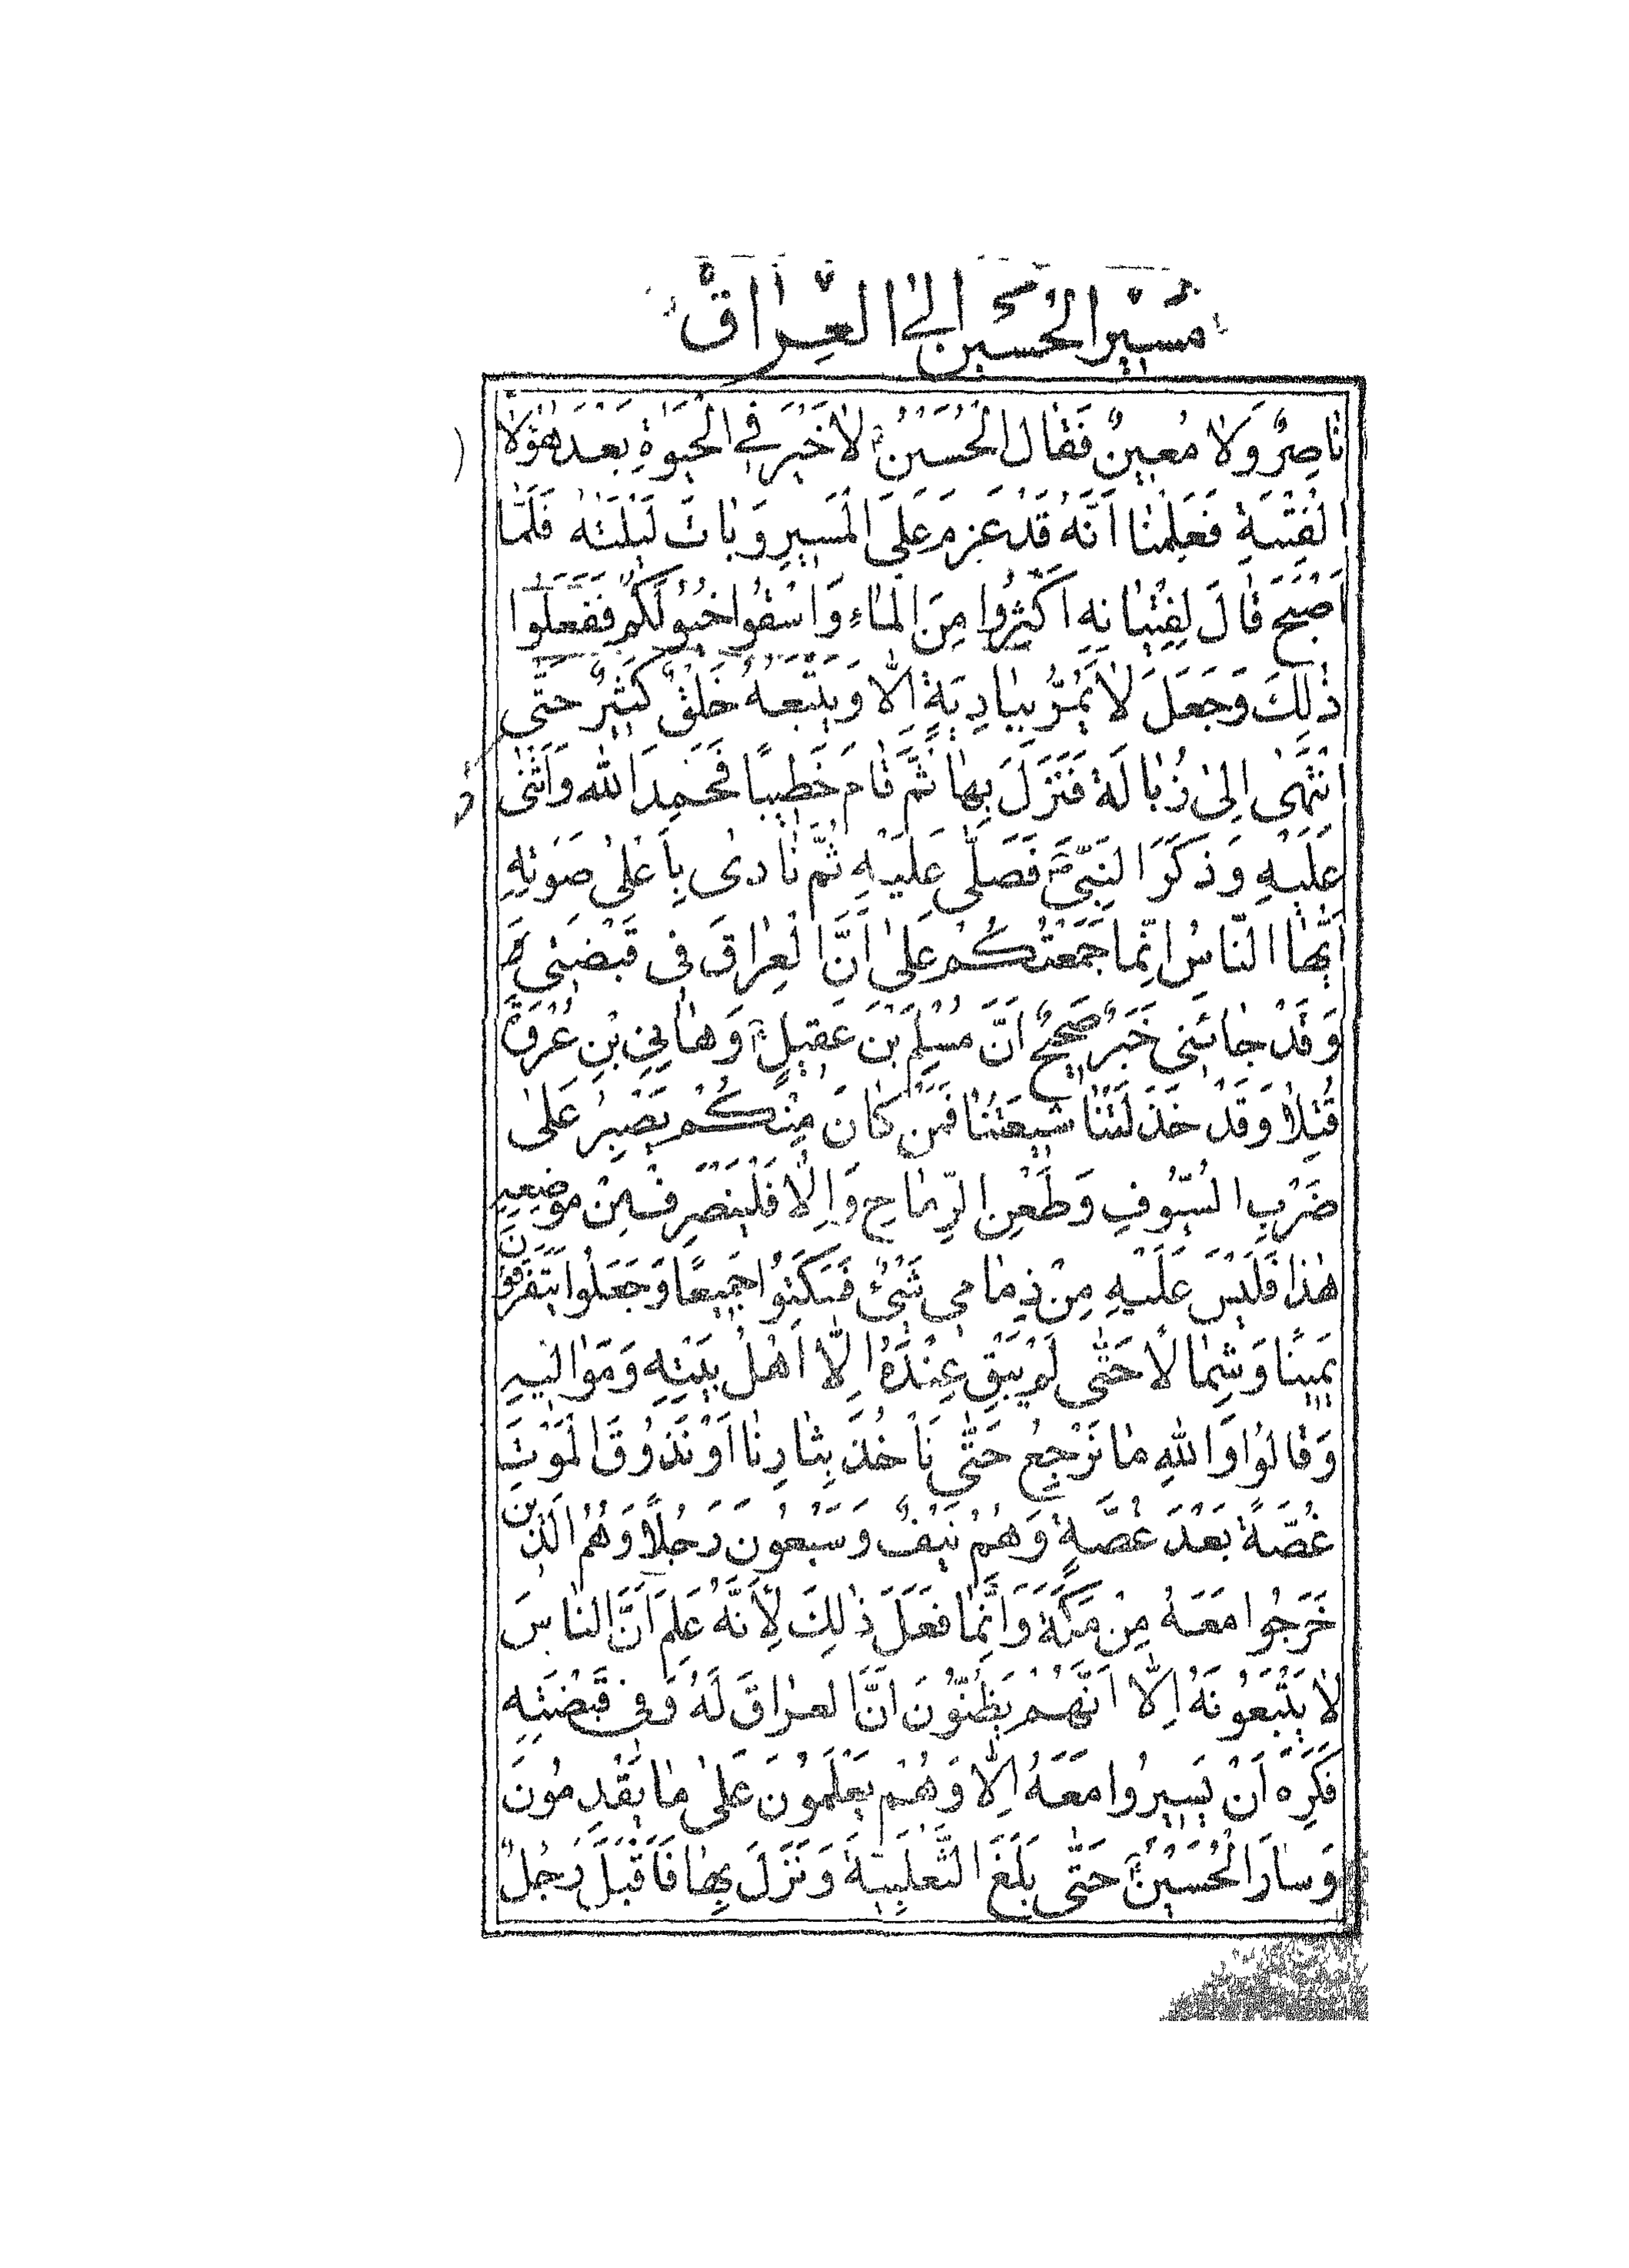 مَسيرُ الحُسَينِ إِلَى العِراقِ
نٰاصِرٌ وَلاٰ مُعينٌ فَقٰالَ الْحُسَيْنُ لاٰ خَيْرَ فِي الْحَيٰوةِ بَعْدَ هٰؤُلاٰ
الْفِتْيَةِ فَعَلِمْنٰا اَنَّهُ قَدْ عَزَمَ عَلَى الْمَسيرِ وَبٰاتَ لَيْلَتَهُ فَلَمّٰا
اَصْبَحَ قٰالَ لِفِتْيٰانِهِ اَكْثِرُوا مِنَ الْمٰاءِ وَاسْقُوا خُيُولَكُمْ فَفَعَلُوا
ذٰلِكَ وَجَعَلَ لاٰ يَمُرُّ بِبٰادِيَةٍ اِلّاٰ وَيَتْبَعُهُ خَلْقٌ كَثيرٌ حَتّٰى
انْتَهٰى اِلىٰ زُبٰالَةَ فَنَزَلَ بِهٰا ثُمَّ قٰامَ خَطيبًا فَحَمِدَ اللهَ وَاَثْنٰى
عَلَيْهِ وَذَكَرَ النَّبِيَّ فَصَلّٰى عَلَيْهِ ثُمَّ نٰادىٰ بِاَعْلىٰ صَوْتِهِ
اَيُّهَا النّٰاسُ اِنَّمٰا جَمَعْتُكُمْ عَلىٰ اَنَّ الْعِرٰاقَ فِى قَبْضَتِى
وَقَدْ جٰائَنِى خَبَرٌ صَحيحٌ اَنَّ مُسْلِمَ بْنَ عَقيلٍ وَهٰانِيَ بْنِ عُرْوَةَ
قُتِلاٰ وَقَدْ خَذَلَتْنٰا شيعَتُنٰا فَمَنْ كٰانَ مِنْكُمْ يَصْبِرُ عَلىٰ
ضَرْبِ السُّيُوفِ وَطَعْنِ الرِّمٰاحِ وَاِلّاٰ فَلْيَنْصَرِفْ مِنْ مَوْضِعِهِ
هٰذٰا فَلَيْسَ عَلَيْهِ مِنْ ذِمٰامِى شَيْئٌ فَسَكَتُوا جَميعًا وَجَعَلُوا يَتَفَرَّقُونَ
يَمينًا وَشِمٰالًا حَتّٰى لَمْ يَبْقَ عِنْدَهُ اِلّاٰ اَهْلُ بَيْتِهِ وَمَوٰاليهِ
وَقٰالُوا وَاللهِ مٰا نَرْجِعُ حَتّٰى نَاْخُذَ بِثٰارِنٰا اَوْ نَذُوقَ الْمَوْتَ
غُصَّةً بَعْدَ غُصَّةٍ وَهُمْ نَيْفٌ وَسَبْعُونَ رَجُلًا وَهُمُ الَّذينَ
خَرَجُوا مَعَهُ مِنْ مَكَّةَ وَاِنَّمٰا فَعَلَ ذٰلِكَ لِاَنَّهُ عَلِمَ اَنَّ النّٰاسَ
لاٰ يَتْبَعُونَهُ اِلّاٰ اَنَّهُمْ يَظُنُّونَ اَنَّ الْعِرٰاقَ لَهُ وَفِي قَبْضَتِهِ
فَكَرِهَ اَنْ يَسيرُوا مَعَهُ اِلّاٰ وَهُمْ يَعْلَمُونَ عَلىٰ مٰا يَقْدِمُونَ
وَسٰارَ الْحُسَيْنُ حَتّٰى بَلَغَ الثَّعْلَبِيَّةَ وَنَزَلَ بِهٰا فَاَقْبَلَ رَجُلٌ